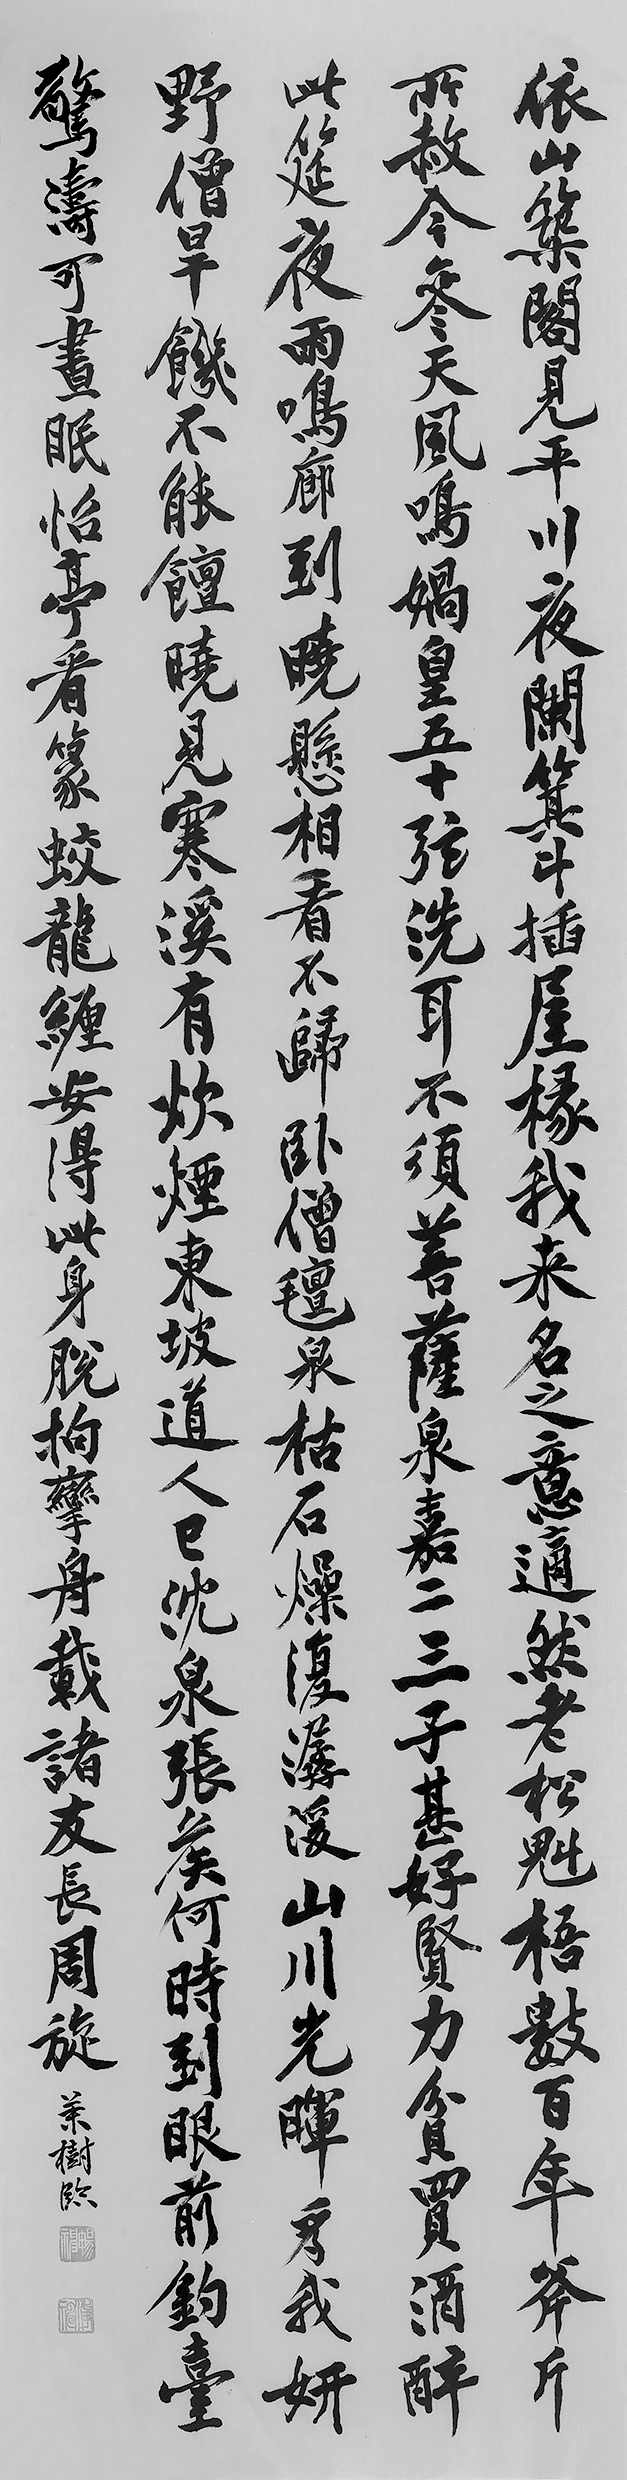 依山築閣見平川夜闌箕斗插屋椽我来名之意適然老松魁梧數百年斧斤
所赦今参天風鳴媧皇五十弦洗耳不須菩薩泉嘉二三子甚好賢力貧買酒醉
此筵夜雨鳴廊到曉懸相看不歸臥僧氊泉枯石燥復潺湲山川光暉為我妍
野僧旱饑不能饘曉見寒溪有炊煙東坡道人已沈泉張侯何時到眼前釣臺
驚濤可晝眠怡亭看篆蛟龍纏安得此身脫拘攣舟載諸友長周旋
樹臨